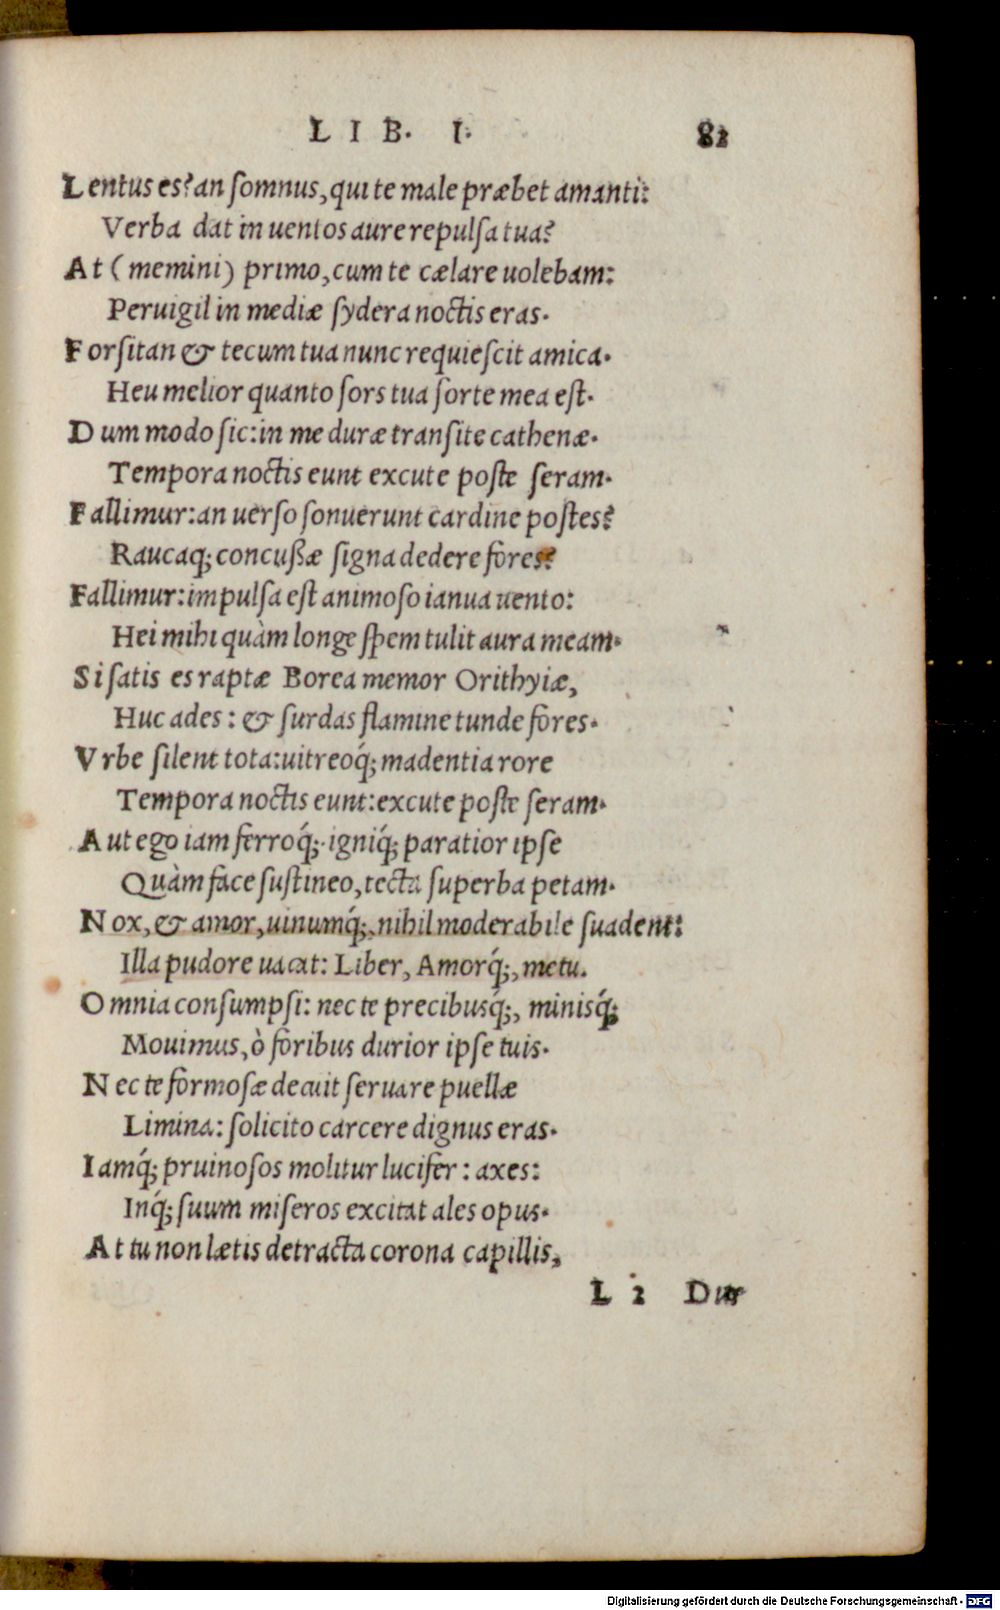 LIB. I. 82
Lentus es? an ſomnus, qui te male præbet amanti:
Verba dat in uentos aure repulſa tua?
At (memini) primo, cum te cælare uolebam:
Peruigil in mediæ ſydera noctis eras.
Forſitan & tecum tua nunc requieſcit amica.
Heu melior quanto ſors tua ſorte mea eſt.
Dum modo ſic: in me duræ tranſite cathenæ.
Tempora noctis eunt excute poſte ſeram.
Fallimur: an uerſo ſonuerunt cardine poſtes?
Raucaq; concuſſæ ſigna dedere fores?
Fallimur: impulſa eſt animoſo ianua uento:
Hei mihi quàm longe ſpem tulit aura meam.
Si ſatis es raptæ Borea memor Orithyiæ,
Huc ades: & ſurdas flamine tunde fores.
Vrbe ſilent tota: uitreoq́; madentia rore
Tempora noctis eunt: excute poſte ſeram.
Aut ego iam ferroq́;. igniq́; paratior ipſe
Quàm face ſuſtineo, tecta ſuperba petam.
Nox, & amor, uinumq́;, nihil moderabile ſuadent:
Illa pudore uacat: Liber, Amorq́;, metu.
Omnia conſumpſi: nec te precibusq́;, minisq́;
Mouimus, ò foribus durior ipſe tuis.
Nec te formoſæ decuit ſeruare puellæ
Limina: ſolicito carcere dignus eras.
Iamq́; pruinoſos molitur lucifer: axes:
Inq́; ſuum miſeros excitat ales opus.
At tu non lætis detracta corona capillis,
L 2 Dur
Digitalisierung gefördert durch die Deutsche Forschungsgemeinschaft - DFG